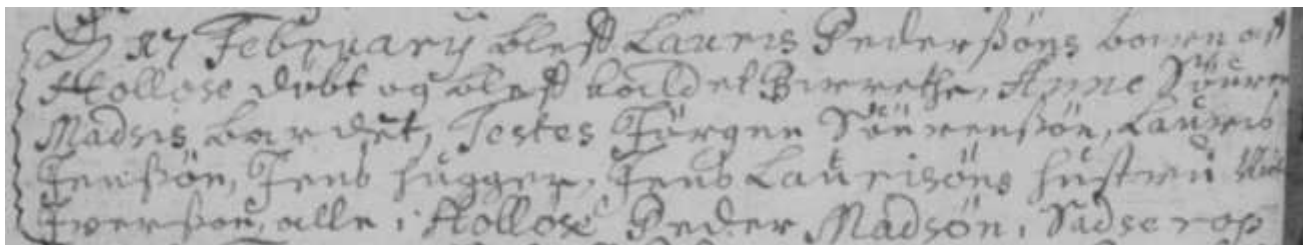 D 27 February bleff Lauris Pederßöns barn aff
Hollose döbt og bleff kaldet Birrethe, Anne Söffren
Madsis bar det, Testes Jörgen Sörrenßön, Lauris
Jenßön, Jens hugger, Jens Laurisöns hustru
Iverßön, alle i Hollose Peder Madsön, i